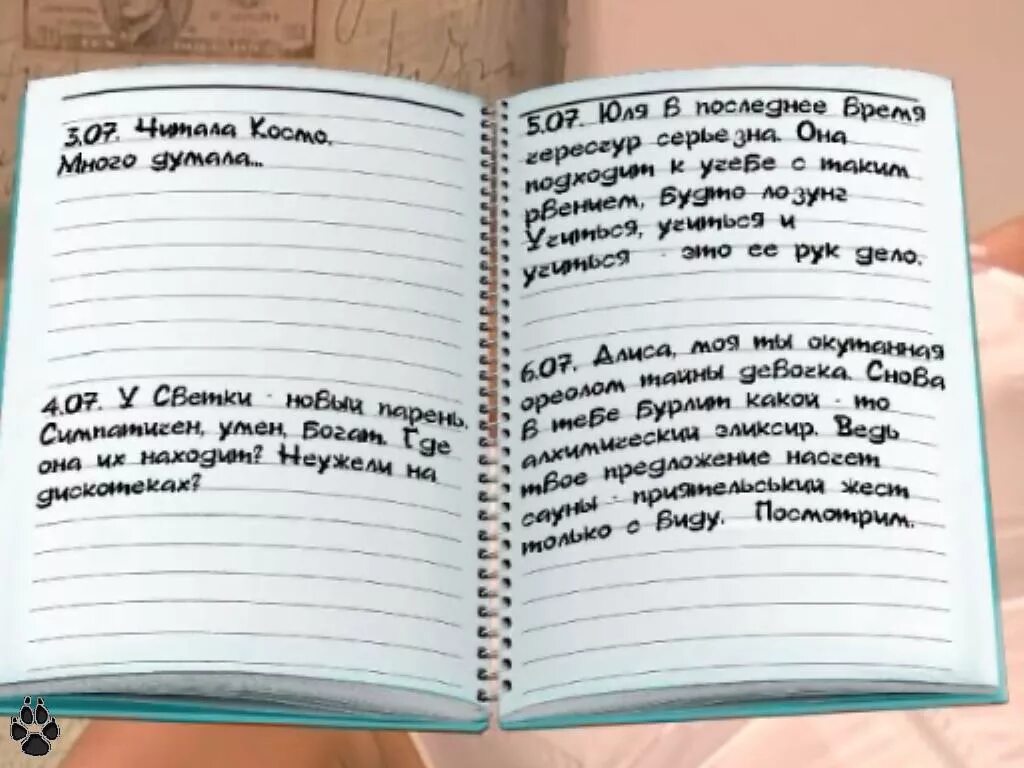 3.07. Читала Космо.
Много думала...
4.07. У Светки - новый парень.
Симпатичен, умен, богат. Где
она их находит? Неужели на
дискотеках?
5.07. Юля в последнее время
чересчур серьезна. Она
подходит к учебе с таким
рвением, будто лозунг
Учиться, учиться и
учиться - это ее рук дело.
6.07. Алиса, моя ты окутанная
ореолом тайны девочка. Снова
в тебе бурлит какой - то
алхимический эликсир. Ведь
твое предложение насчет
сауны - приятельський жест
только с виду. Посмотрим.